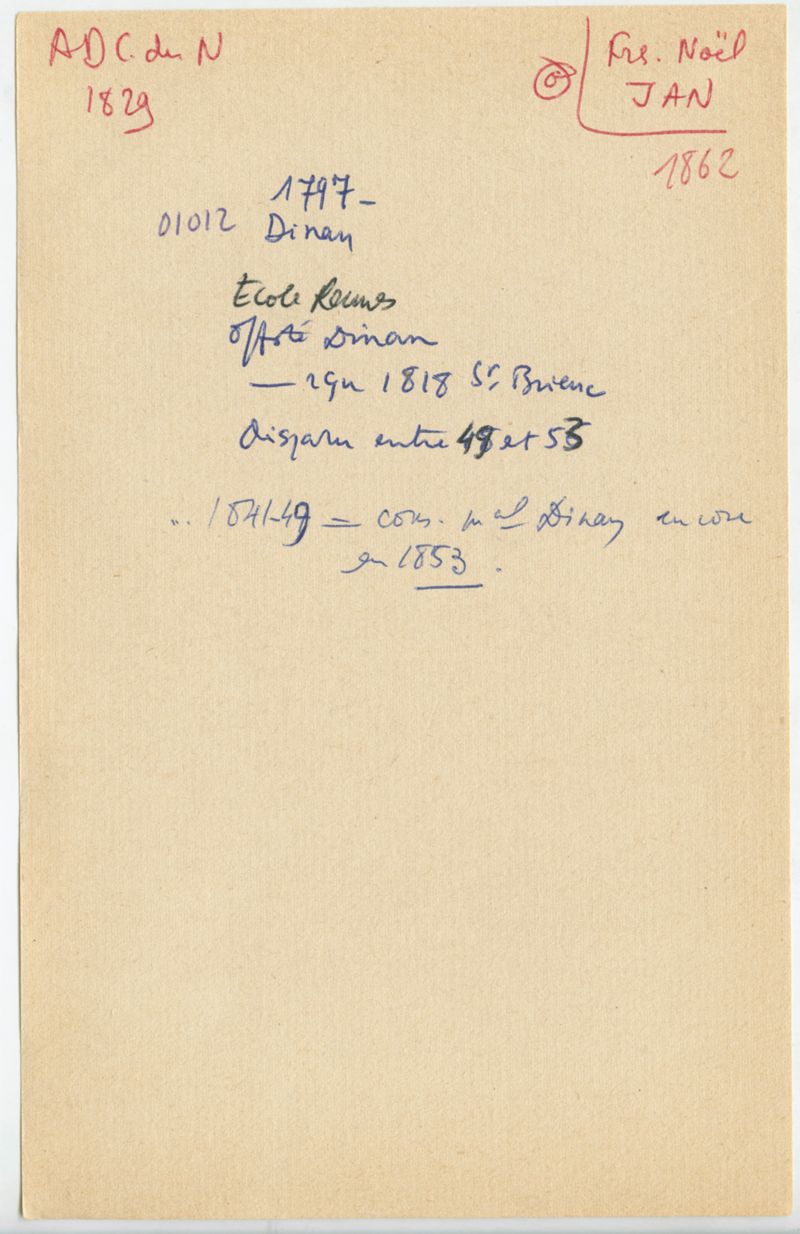 A D C. du N
1829
Frs. Noël
JAN
1862
1797 -
01012 Dinan
Ecole Rennes
Dinan
— 1818 St. Brieuc
disparu entre 49 et 53
... 1841-49 = cons. mal Dinan encore
en 1853.